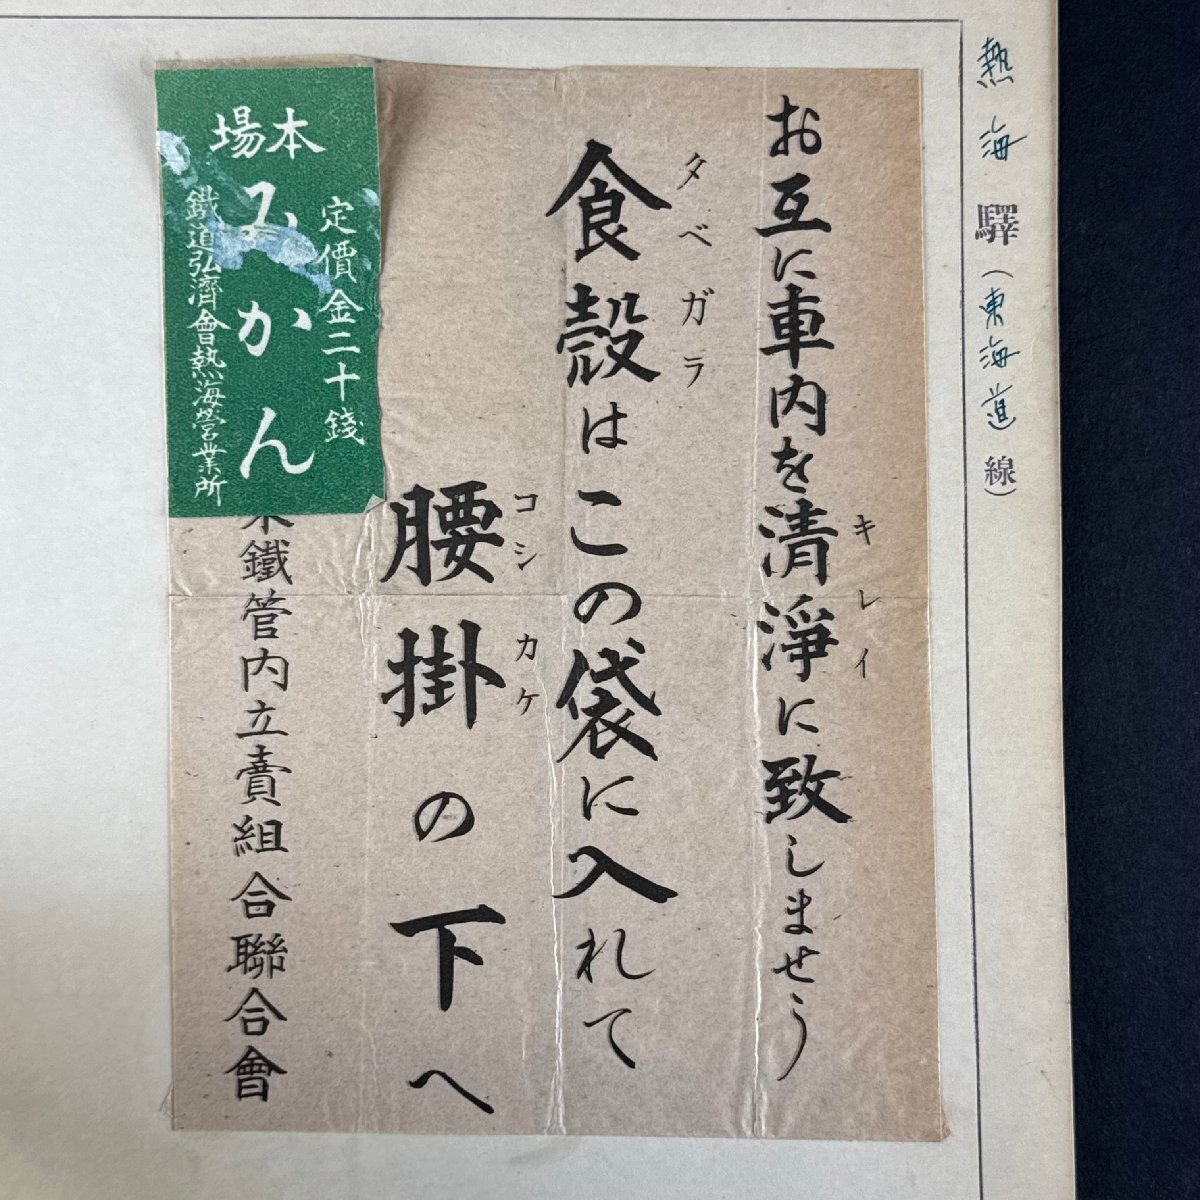 熱海驛(東海道線)
お互に車内を清淨に致しませう
キレイ
食殻はこの袋に入れて
タベガラ
腰掛の下へ
コシカケ
鐵管内立賣組合聯合會
場本
定價金二十錢
みかん
鐵道弘濟會熱海營業所